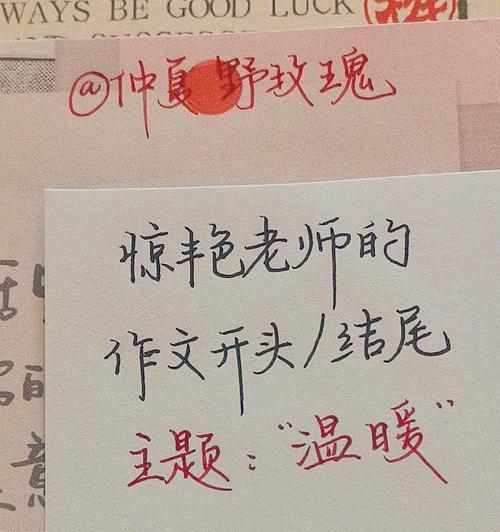 WAYS BE GOOD LUCK
AND SUCCESS
@仲夏野玫瑰
惊艳老师的
作文开头/结尾
主题：“温暖”
的
意